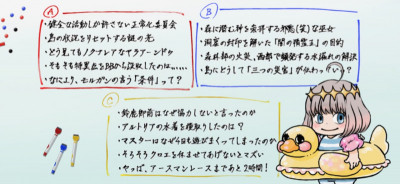 A
・健全な活動しか許さない正常化委員会
・島の状況をリセットする謎の光
・どう見てもノクナレアなサラアーンドゥ
・そもそも特異点をBBから没収したのは……
・なにより、モルガンの言う「条件」って？
B
・森に潜む神を崇拝する邪悪(笑)な巫女
・洞窟の封印を解いた「闇の精霊王」の目的
・森林部の火災、西部で頻発する水漏れの解決
・島にどうして「三つの災害」が伝わっている？
C
・鈴鹿御前はなぜ協力しないと言ったのか
・アルトリアの水着を横取りしたのは？
・マスターはなぜ今回も遊びまくってしまったのか
・そろそろクロエを休ませてあげないとマズい
・ヤッば、アースマンレースまであと2時間！